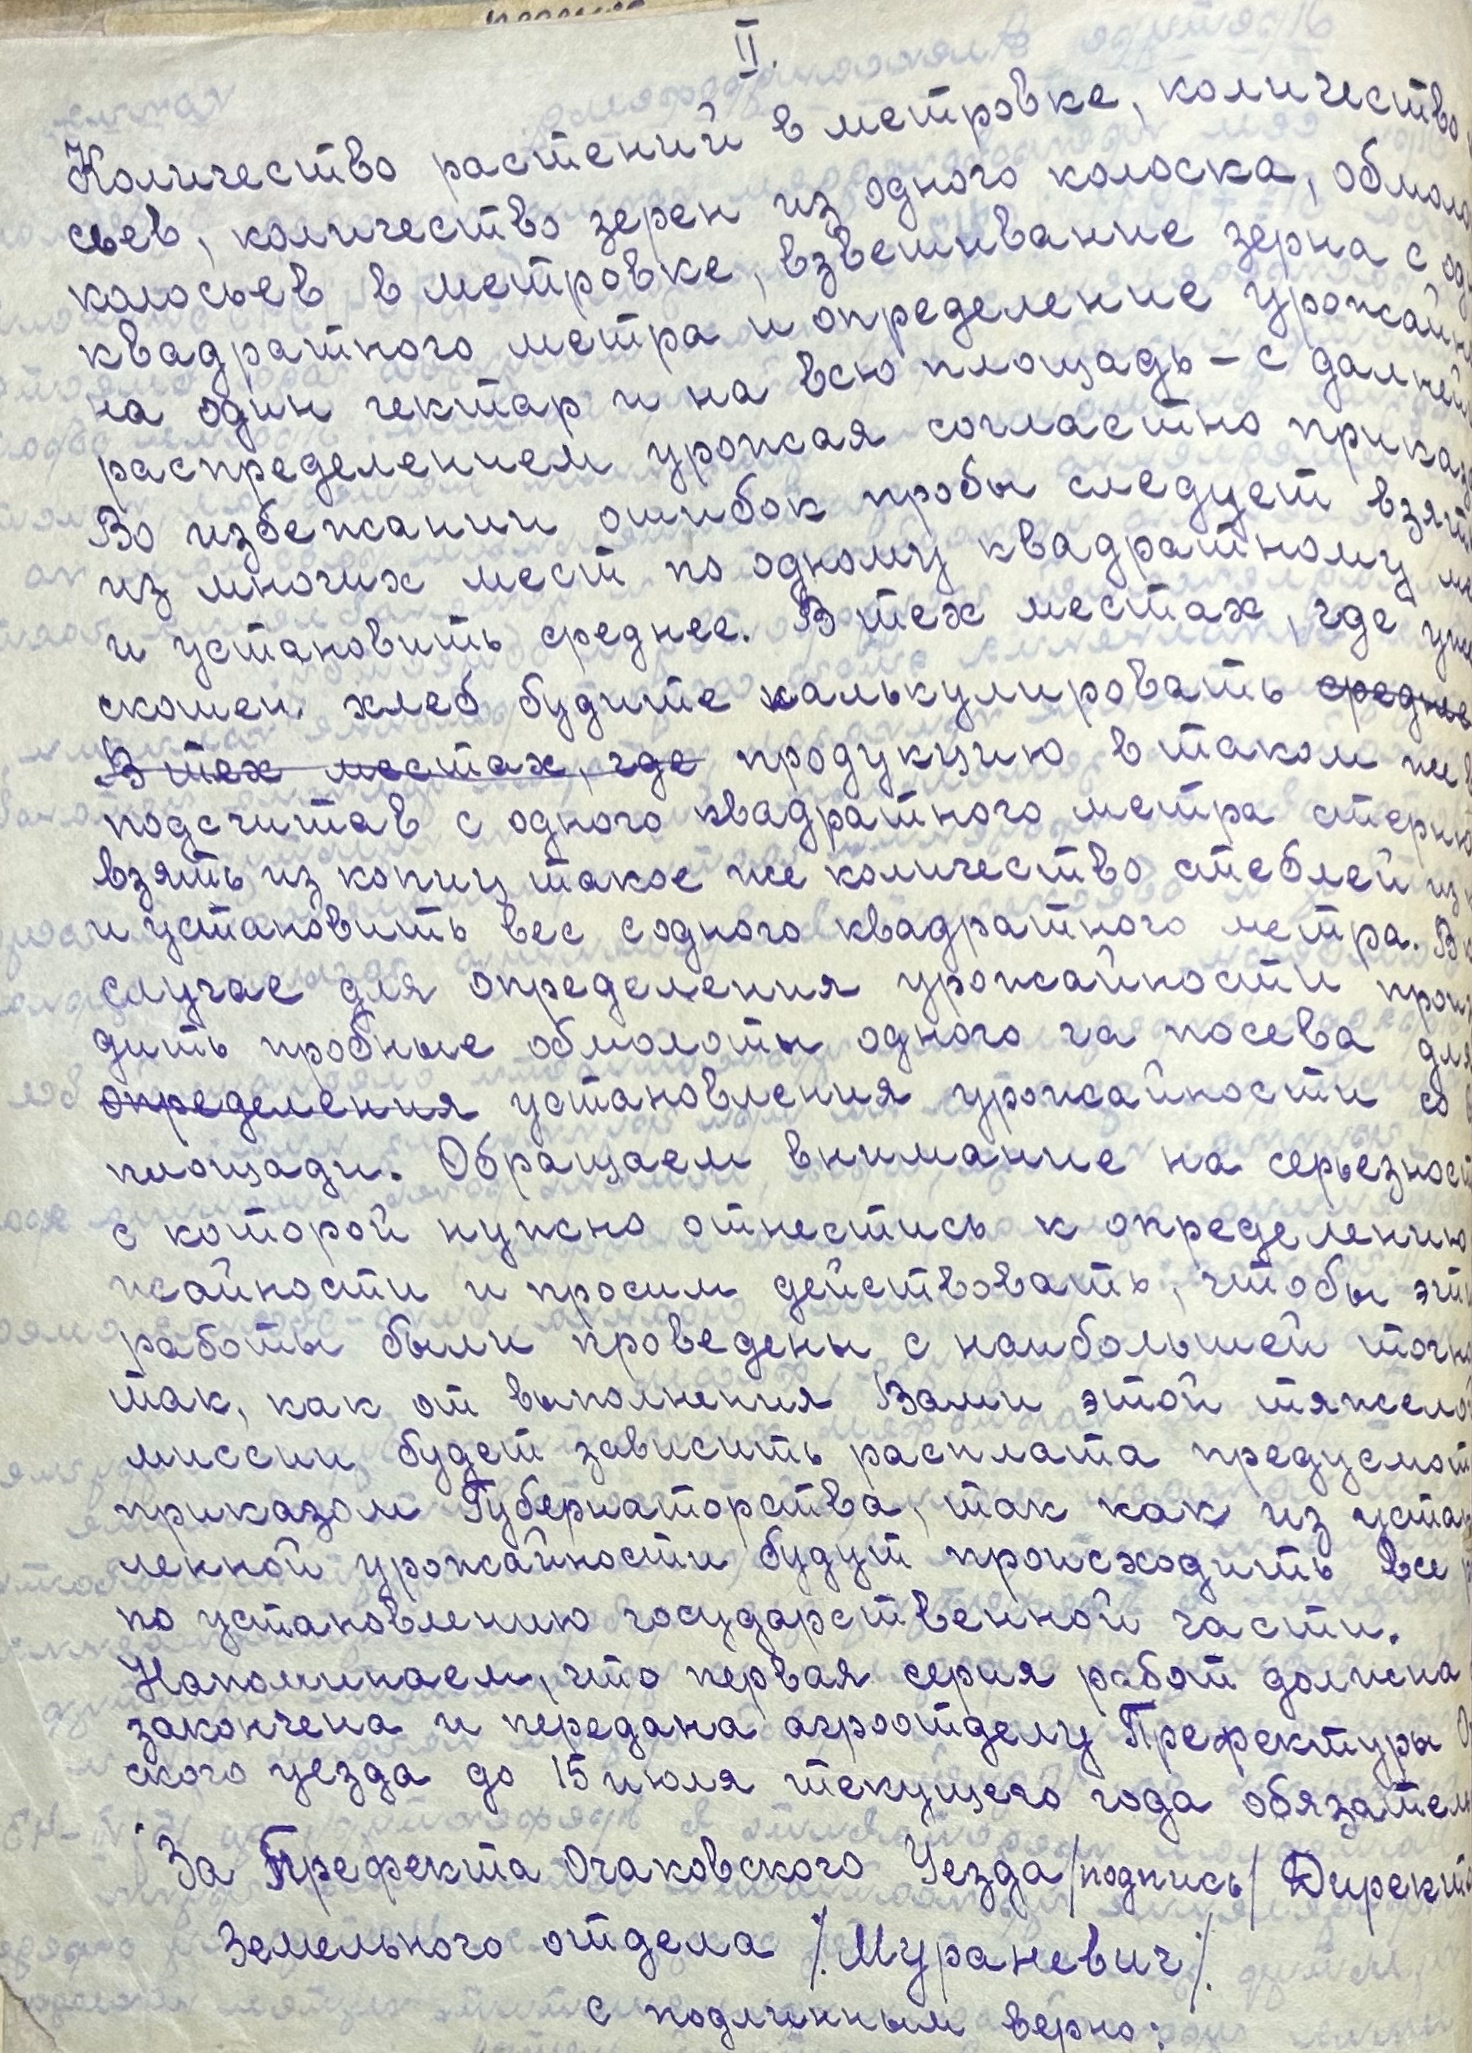 II.
Количество растений в метровке, количество
сьев, количество зерен из одного колоска, обмоло
колосьев в метровке, взвешивание зерна с од
квадратного метра и определение урожайн
на один гектар и на всю площадь – с далней
распределением урожая согластно приказ
Во избежании ошибок пробы следует взять
из многих мест по одному квадратному м
и установить среднее. В тех местах, где уже
скошен. хлеб будите калькулировать среднее
В тех местах, где продукцию в таком же в
подсчитав с одного квадратного метра стерню
взять из копиц такое же количество стеблей из
и установить вес с одного квадратного метра. В к
случае для определения урожайности произ
дить пробные обмолоты одного га посева для
определения установления урожайности со в
площади. Обращаем внимание на серьезност
с которой нужно отнестись к определению
жайности и просим действовать, чтобы эти
работы были проведены с наибольшей точно
так, как от выполнения Вами этой тяжелой
миссии будет зависить расплата предусмот
приказом Губернаторства, так как из устан
ленной урожайности будут происходить все р
по установлению государственной части.
Напоминаем, что первая серия работ должна
закончена и передана агроотделу Префектуры О
ского уезда до 15 июля текущего года обязател
За Префекта Очаковского Уезда /подпись/ Директо
Земельного отдела /.Мураневич/.
с подлинным верно: